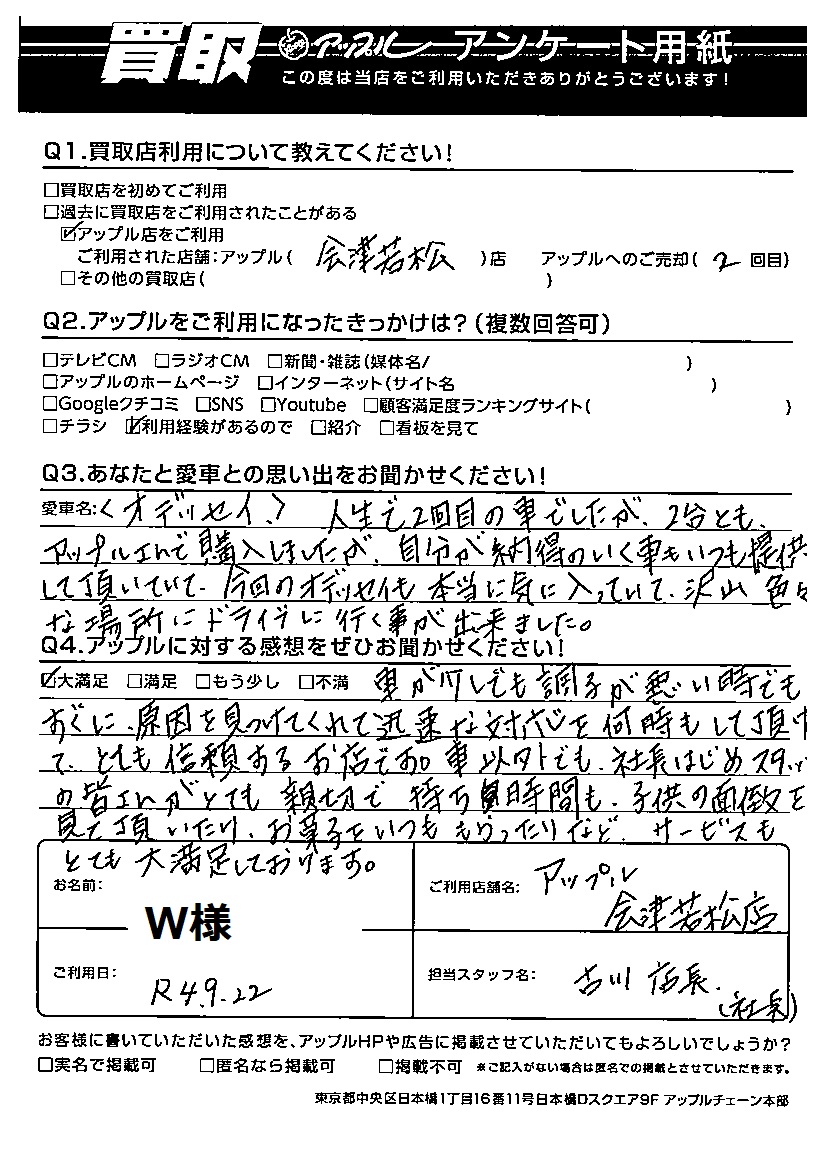 買取 アップル アンケート用紙
この度は当店をご利用いただきありがとうございます!
Q1.買取店利用について教えてください!
□買取店を初めてご利用
□過去に買取店をご利用されたことがある
☑アップル店をご利用
ご利用された店舗:アップル( 会津若松 )店 アップルへのご売却( 2 回目)
□その他の買取店( )
Q2.アップルをご利用になったきっかけは?(複数回答可)
□テレビCM □ラジオCM □新聞・雑誌(媒体名/ )
□アップルのホームページ □インターネット(サイト名 )
□Googleクチコミ □SNS □Youtube □顧客満足度ランキングサイト( )
□チラシ ☑利用経験があるので □紹介 □看板を見て
Q3.あなたと愛車との思い出をお聞かせください!
愛車名:<オデッセイ.> 人生で2回目の車でしたが、2台とも、
アップルさんで購入しましたが、自分が納得のいく車をいつも提供
して頂いていて、今回のオデッセイも本当に気に入っていて、沢山色々
な場所にドライブに行く事が出来ました。
Q4.アップルに対する感想をぜひお聞かせください!
☑大満足 □満足 □もう少し □不満 車が少しでも調子が悪い時でも
すぐに、原因を見つけてくれて迅速な対応を何時もして頂け
て、とても信頼するお店です。車以外でも、社長はじめスタッ
の皆さんがとても親切で待ち時間も、子供の面倒を
見て頂いたり、お菓子をいつももらったりなど、サービスも
とても大満足しております。
お名前: W様
ご利用店舗名: アップル
会津若松店
ご利用日: R4.9.22
担当スタッフ名: 古川店長.
(社長)
お客様に書いていただいた感想を、アップルHPや広告に掲載させていただいてもよろしいでしょうか?
□実名で掲載可 □匿名なら掲載可 □掲載不可 ※ご記入がない場合は匿名での掲載とさせていただきます。
東京都中央区日本橋1丁目16番11号日本橋Dスクエア9F アップルチェーン本部